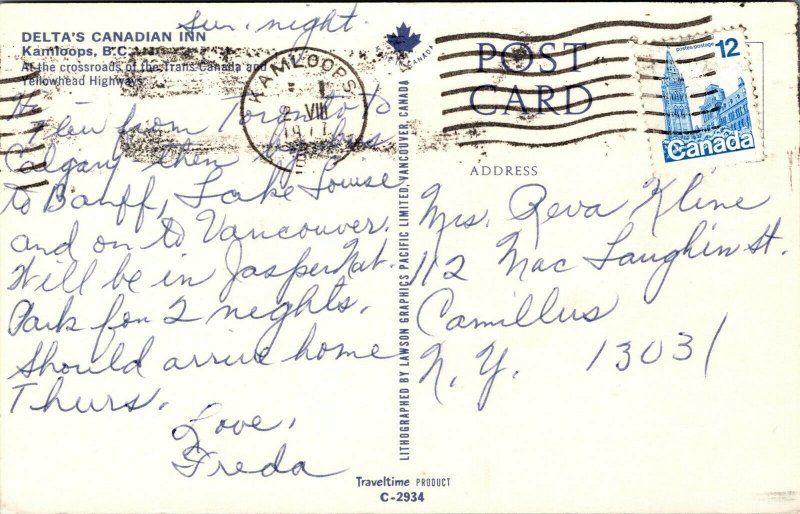 Sun. night.
DELTA'S CANADIAN INN
Kamloops, B.C.
At the crossroads of the Trans Canada and
Yellowhead Highways
Hi -
Flew from Toronto to
Calgary then by bus
to Banff, Lake Louise
and on to Vancouver.
Will be in Jasper Nat.
Park for 2 nights.
Should arrive home
Thurs.
Love,
Freda
CANADA
LITHOGRAPHED BY LAWSON GRAPHICS PACIFIC LIMITED, VANCOUVER, CANADA
Traveltime PRODUCT
C-2934
KAMLOOPS
2 VIII
1977
POST
CARD
postes postage
12
Canada
ADDRESS
Mrs. Reva Kline
112 Mac Laughin St.
Camillus
N.Y. 13031